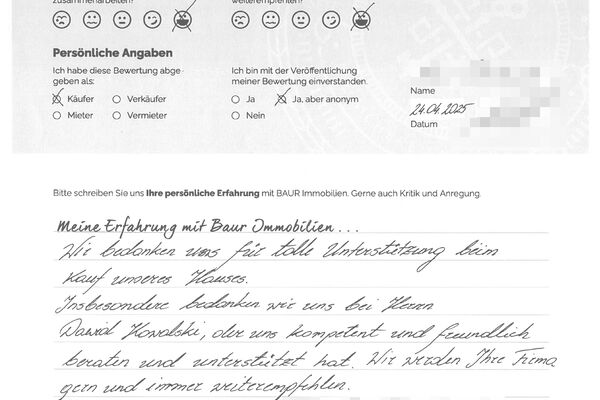 zusammenarbeiten? weiterempfehlen?
Persönliche Angaben
Ich habe diese Bewertung abge-
geben als:
Käufer Verkäufer
Mieter Vermieter
Ich bin mit der Veröffentlichung
meiner Bewertung einverstanden.
Ja Ja, aber anonym
Nein
Name
24.04.2025
Datum
Bitte schreiben Sie uns Ihre persönliche Erfahrung mit BAUR Immobilien. Gerne auch Kritik und Anregung.
Meine Erfahrung mit Baur Immobilien ...
Wir bedanken uns für tolle Unterstützung beim
Kauf unseres Hauses.
Insbesondere bedanken wir uns bei Herrn
Dawid Kowalski, der uns kompetent und freundlich
beraten und unterstützt hat. Wir werden Ihre Firma
gern und immer weiterempfehlen.